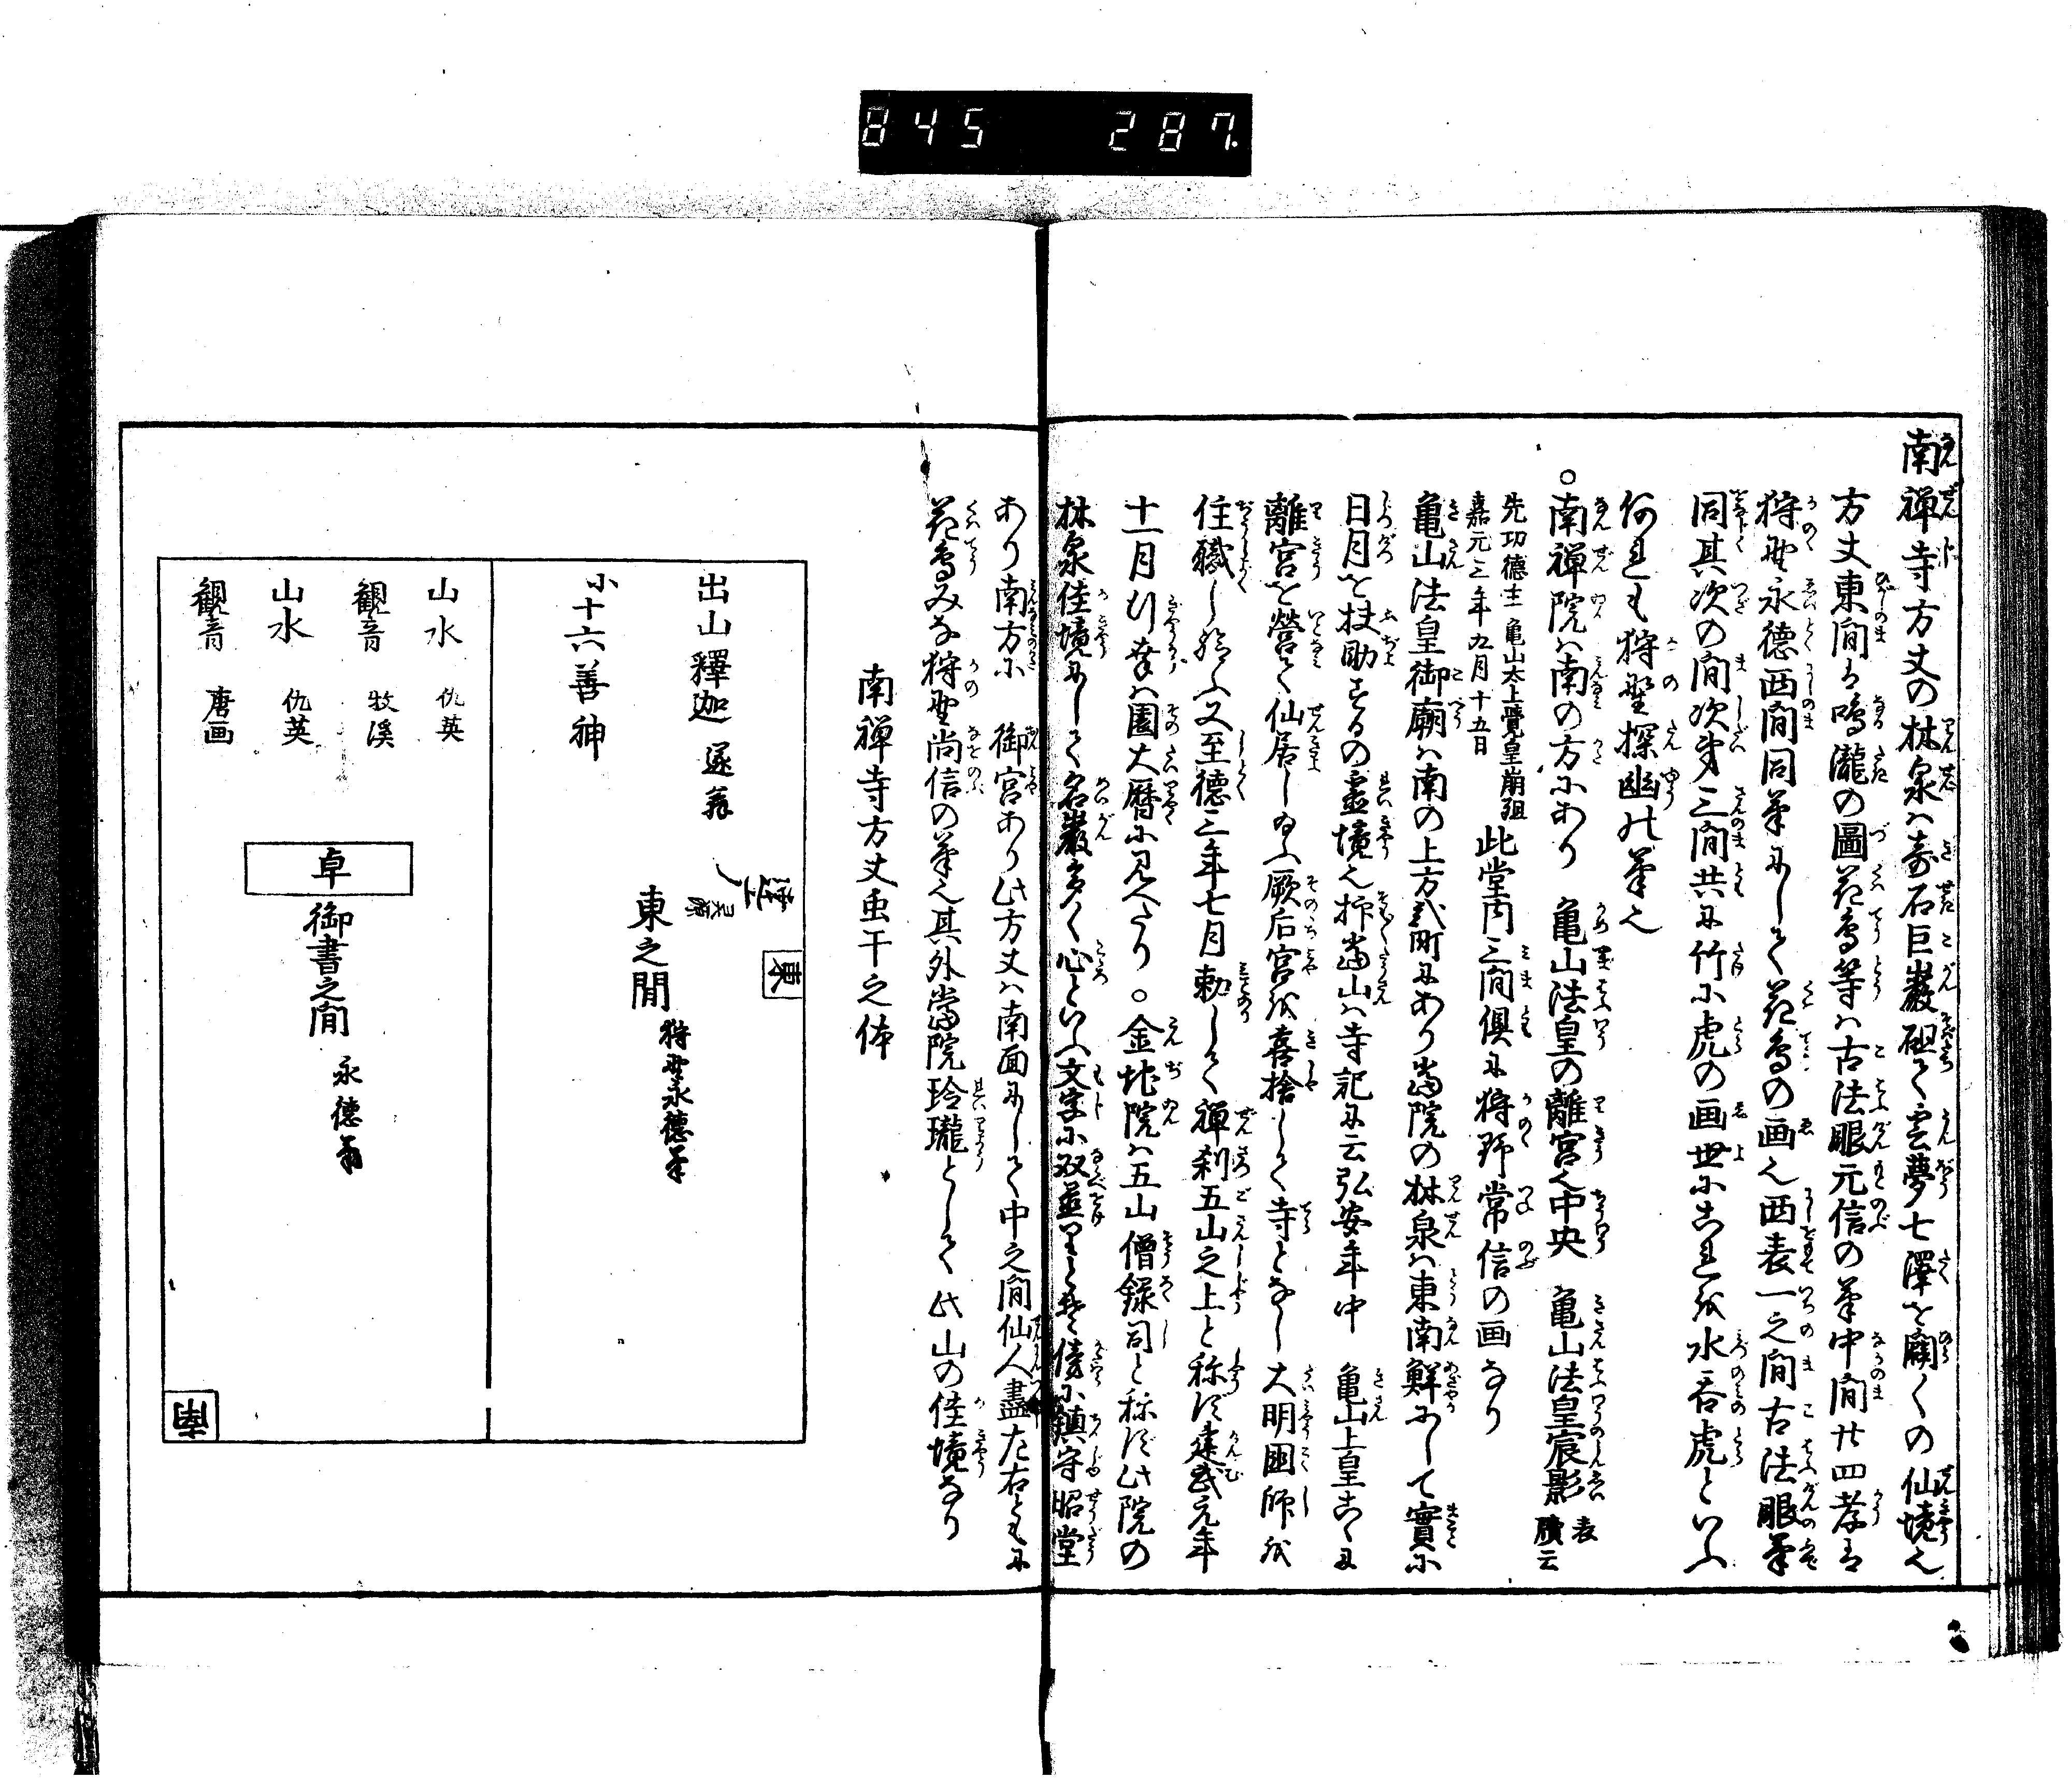 845 287.
南禅寺方丈の林泉ハ奇石巨巌砠て雲夢七澤を闢くの仙境也
方丈東間は鳴瀧の圖花鳥等ハ古法眼元信の筆中間廿四孝は
狩野永徳西間同筆にして花鳥の画也西表一之間古法眼筆
同其次の間次第三間共に竹に虎の画世にこれを水呑虎といふ
何れも狩野探幽の筆也
○南禅院ハ南の方にあり 亀山法皇の離宮也中央 亀山法皇宸影 表牘云
先功徳主 亀山太上覺皇崩殂
嘉元三年九月十五日
此堂内三間倶に狩野常信の画なり
亀山法皇御廟ハ南の上方弐町にあり當院の林泉ハ東南鮮にして實に
日月を扶助するの霊境也抑當山ハ寺記に云弘安年中 亀山上皇こゝに
離宮を營て仙居し給ふ厥后宮を喜捨して寺となし大明国師を
住職し給ふ又至徳三年七月勅して禅刹五山之上と称す建武元年
十一月行幸ハ園大暦に見へたり ○金地院ハ五山僧録司と称す此院の
林泉佳境にして名巌多く心といふ文字に双並ける傍に鎮守昭堂
あり南方に 御宮あり此方丈ハ南面にして中之間仙人盡左右ともに
花鳥みな狩野尚信の筆也其外當院玲瓏として此山の佳境なり
南禅寺方丈虫干之体
東
出山釋迦
東之間 狩野永徳筆
十六善神
山水 仇英
観音 牧溪
山水 仇英
観音 唐画
卓
御書之間 永徳筆
南